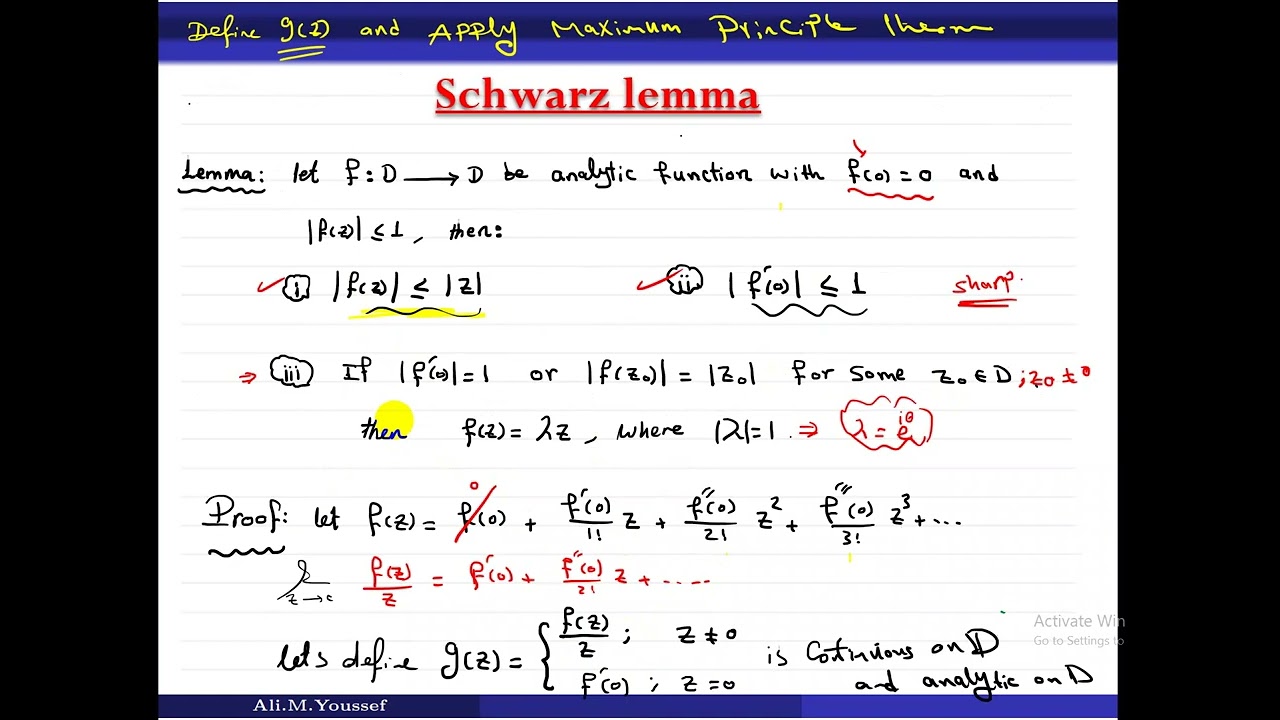 Define g(z) and APPLY Maximum Principle Therm
Schwarz lemma
Lemma: let f : D ⟶ D be analytic function with f(0) = 0 and
|f(z)| ≤ 1, then:
(i) |f(z)| ≤ |z| (ii) |f′(0)| ≤ 1 sharp.
⇒ (iii) If |f′(0)| = 1 or |f(z₀)| = |z₀| for some z₀ ∈ D ; z₀ ≠ 0
then f(z) = λz, where |λ| = 1. ⇒ λ = e^{iθ}
Proof: let f(z) = f(0) 0 + f′(0)/1! z + f″(0)/2! z² + f‴(0)/3! z³ + ...
z→0 f(z)/z = f′(0) + f″(0)/2! z + .....
lets define g(z) = { f(z)/z ; z ≠ 0 is Continuous on D
f′(0) ; z = 0 and analytic on D
Activate Win
Go to Settings to
Ali.M.Youssef